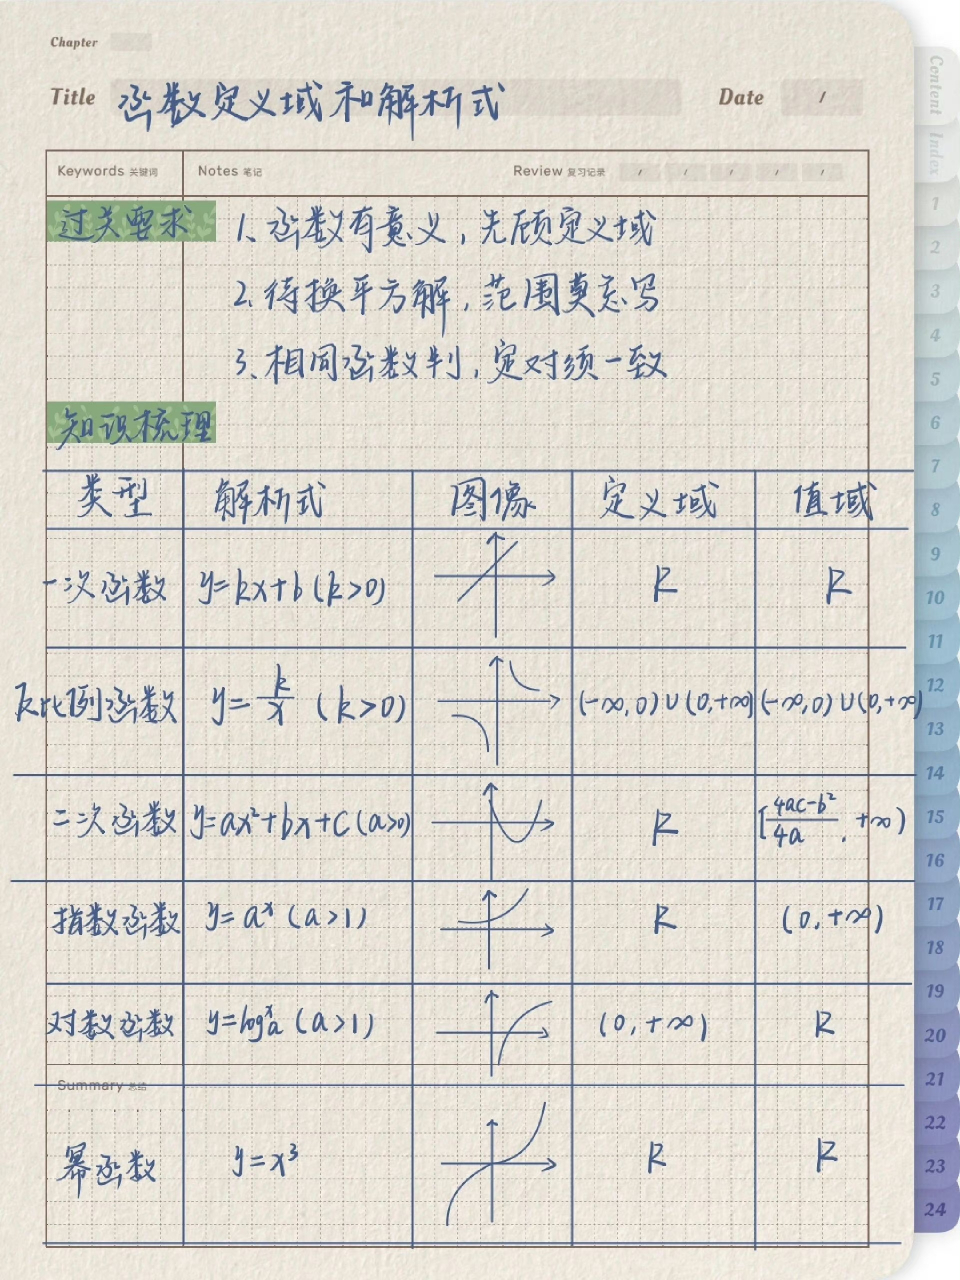 Chapter
Title 函数定义域和解析式 Date /
Keywords 关键词 Notes 笔记 Review 复习记录 / / / / /
过关要求 1、函数有意义,先顾定义域
2、待换平方解,范围莫忘写
3、相同函数判,定对须一致
知识梳理
类型 解析式 图像 定义域 值域
一次函数 y=kx+b(k>0) R R
反比例函数 y=k/x (k>0) (-∞,0)∪(0,+∞) (-∞,0)∪(0,+∞)
二次函数 y=ax²+bx+c(a>0) R [4ac-b²/4a,+∞)
指数函数 y=aˣ(a>1) R (0,+∞)
对数函数 y=logₐx(a>1) (0,+∞) R
Summary 总结
幂函数 y=x³ R R
Content
Index
1
2
3
4
5
6
7
8
9
10
11
12
13
14
15
16
17
18
19
20
21
22
23
24